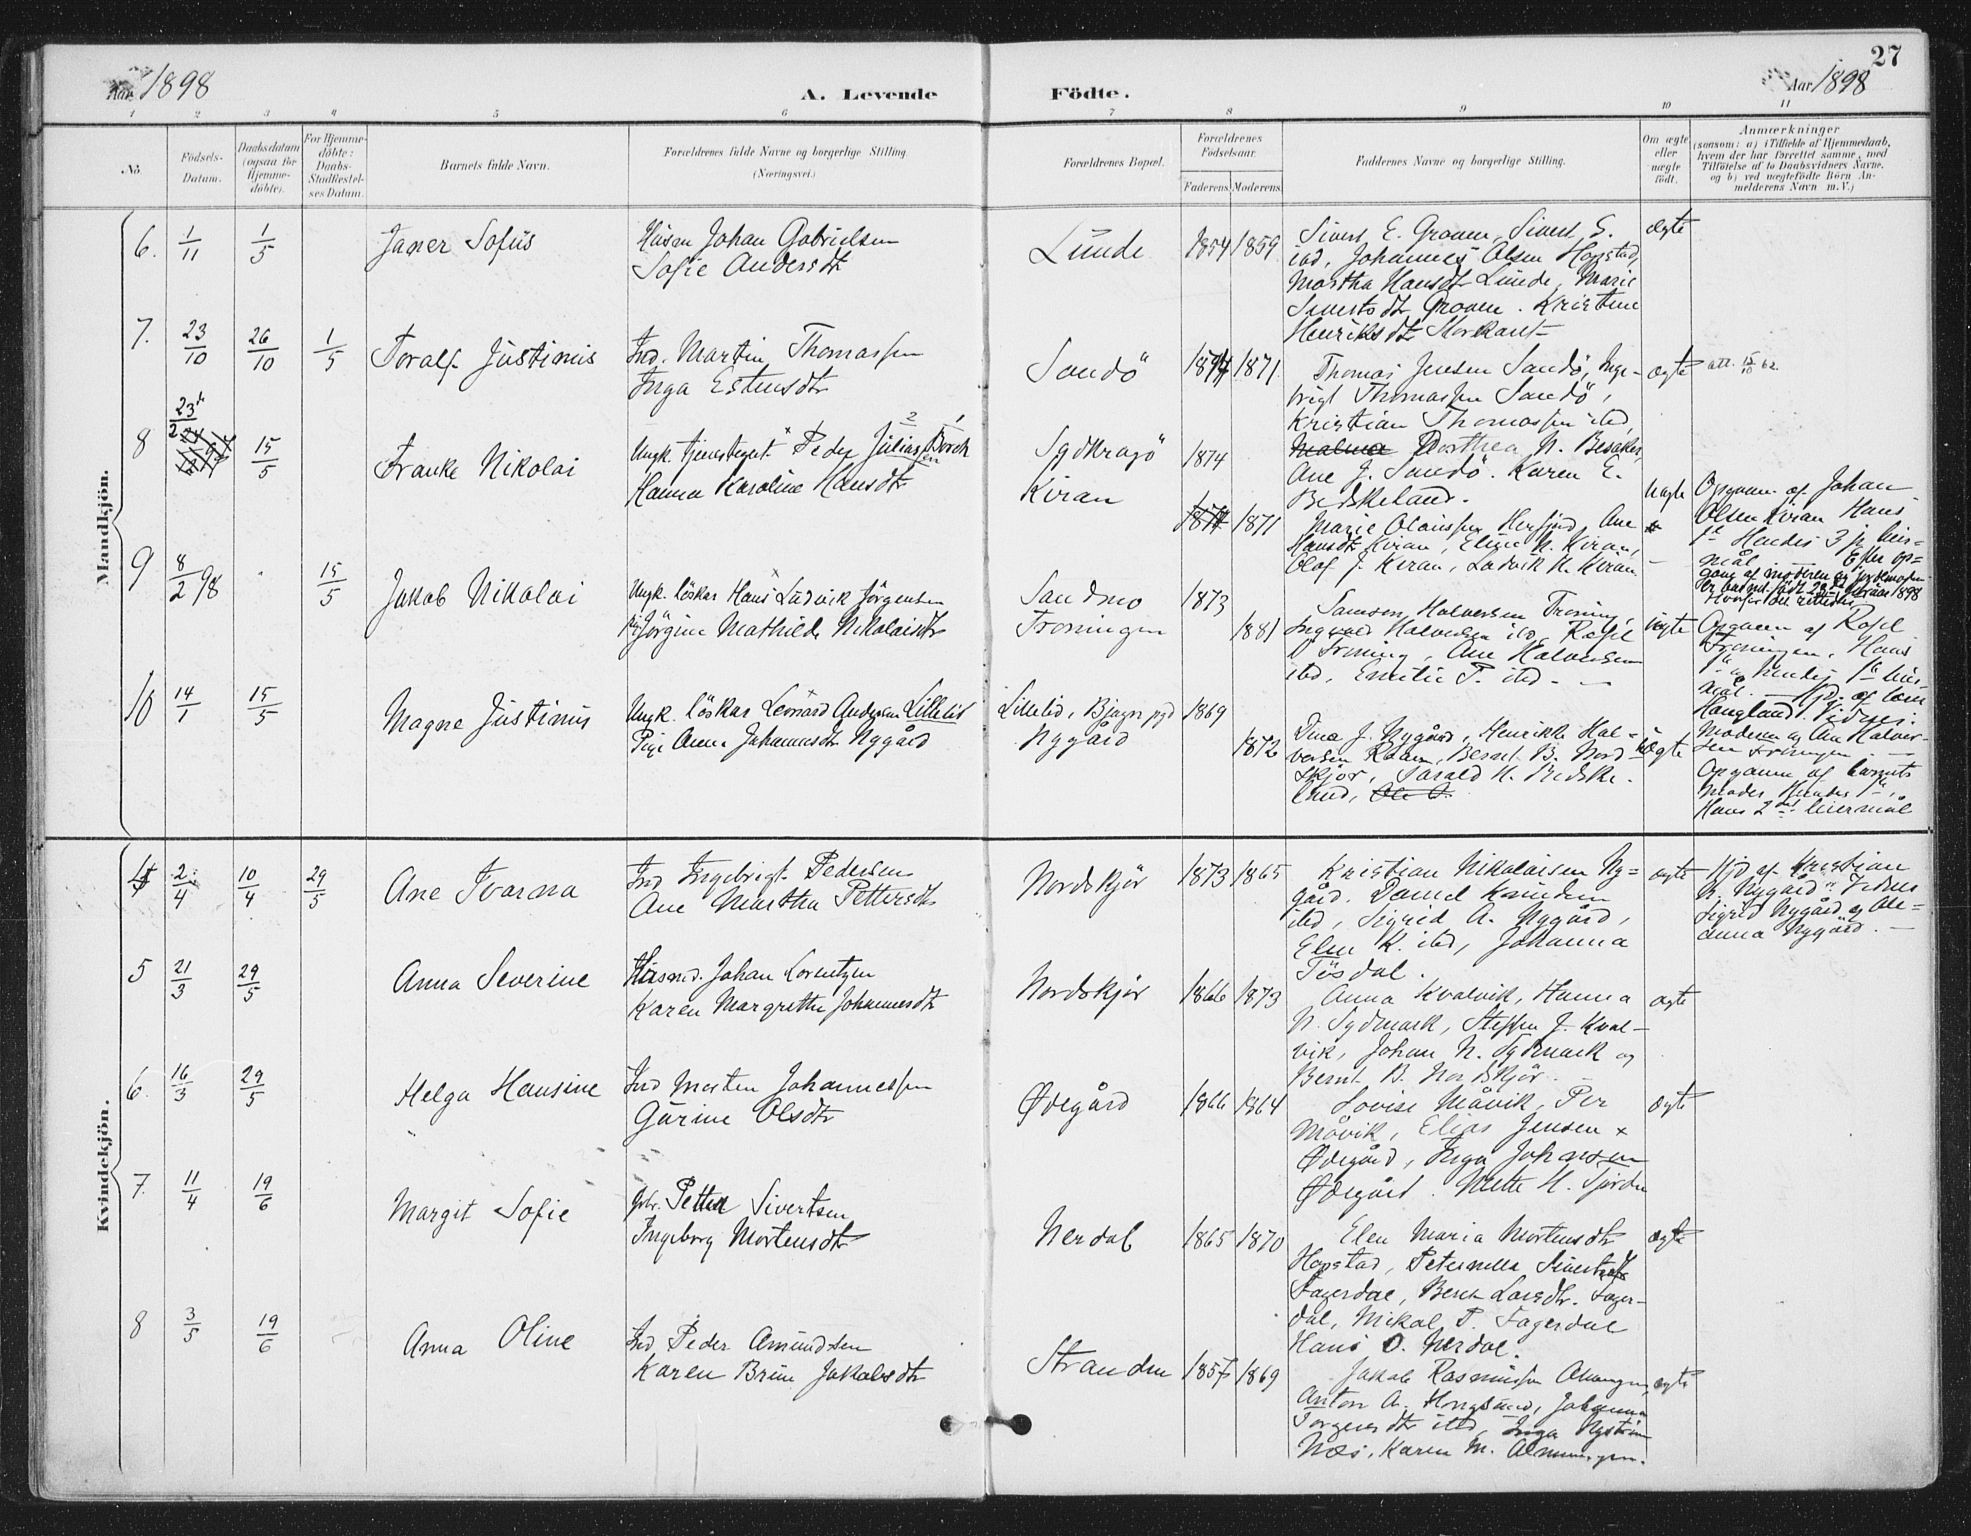 Aar 1898
A. Levende
Födte.
Aar 1898
27
1 2 3 4 5 6 7 8 9 10 11
No.
Födsels-
Datum.
Daabsdatum
(ogsaa for
Hjemme-
döbte).
For Hjemme-
döbte:
Daabs-
Stadfæstel-
ses Datum.
Barnets fulde Navn.
Forældrenes fulde Navne og borgerlige Stilling.
(Næringsvei.)
Forældrenes Bopæl.
Forældrenes
Födselsaar.
Faderens
Moderens
Faddernes Navne og borgerlige Stilling.
Om ægte
eller
uægte
födt.
Anmærkninger
(saasom: a) i Tilfælde af Hjemmedaab,
hvem der har forrettet samme, med
Tilföielse af to Daabsvidners Navne,
og b) ved uægtefödte Börn An-
melderens Navn m. V.)
Mandkjön.
6. 1/11 1/5
Janer Sofus
Husm Johan Gabrielsen
Sofie Andersdtr
Lunde
1854 1859
Sivert E. Groven, Sivert S.
ibd, Johannes Olsen Hopstad,
Martha Hansdtr Lunde, Marie
Sivertsdtr Groven. Kristine
Henriksdtr
ægte
7. 23/10 26/10 1/5
Toralf Justinus
Ind. Martin Thomassen
Inga Estensdtr
Sandö
1871
Thomas Jensen Sandö, Inge-
brigt Thomassen Sandö,
Kristian Thomassen ibd,
Dorthea N. Besaker,
Ane J. Sandö. Karen E.
Bedskeland.
ægte
att. 15/10 62.
8 23/2 15/5
Franke Nikolai
Ungk. tjenestegut Peder Juliussen Borch
Hanna Karoline Hansdtr
Sydkragö
Kiran
1874
1871
Marie Olaussen Herfjord, Ane
Hansdtr Kiran, Eline N. Kiran,
Olaf J. Kiran, Ludvik H. Kiran
uægte
Opgaven af Johan
Olsen Kiran Hans
1ste Hendes 3 je leier-
mål. — Efter op-
gave af moderen og jordemoderen
er barnet født 23de Februar 1898
Hvorfor det rettedes
9 8/2 98 15/5
Jakob Nikolai
Ungk. löskar Hans Ludvik Jörgensen
Pig Jörgine Mathilde Nikolaisdtr
Sandmo
Troningen
1873
1881
Samson Halvorsen Troning,
Ingvald Halvorsen ibd, Rasel
Troning, Ane Halvorsen
ibd, Emilie P. ibd. —
uægte
Opgaven af Rasel
Troningen. Hans
1ste og hendes 1ste leier-
mål. — Hjd. af
Haugland. Vidner:
Moderen og Ane Halvor-
sen Troningen. —
10 14/1 15/5
Magne Justinus
Ungk. löskar Leonard Andersen Lillelid
Pige Anne Johannesdtr Nygård
Lillelid, Bjugn pgd
Nygård
1869
1872
Dina J. Nygård, Henrikke Hal-
vorsen, Bernt B. Nord-
skjör, Harald H. Bedske-
lund,
uægte
Opgaven af barnets
moder. Hendes 1ste,
Hans 2det leiermål
Kvindekjön.
4 2/4 10/4 29/5
Ane Ivarna
Ind Ingebrigt Pedersen
Ane Martha Pettersdtr
Nordskjör
1873 1865
Kristian Nikolaisen Ny-
gård. Daniel Knudsen
ibd, Sigrid A. Nygård,
Elen K. ibd, Johanna
Tösdal.
ægte
Hjd af Kristian
N. Nygård. Vidner
Sigrid Nygård og Ole-
anna Nygård. —
5 21/3 29/5
Anna Severine
Husmd. Johan Lorentzen
Karen Margrethe Johannesdtr
Nordskjör
1866 1873
Anna Kvalvik, Hanna
N. Sydmark, Steffen J. Kval-
vik, Johan N. Sydmark og
Bernt B. Nordskjör.
ægte
6. 16/3 29/5
Helga Hansine
Ind Morten Johannessen
Gurine Olsdtr
Ødegård
1866 1864
Lovise Måvik, Per
Måvik, Elias Jensen x
Ødegård, Inga Johansen
Ødegård. Mette H. Fjorden
ægte
7. 11/4 19/6
Margit Sofie
Gbr. Petter Sivertsen
Ingeborg Mortensdtr
Nerdal
1865 1870
Elen Maria Mortensdtr
Hopstad, Peternella Sivertsdtr
Fagerdal, Berit Larsdtr. Fager-
dal, Mikal P. Fagerdal
Hans O. Nerdal.
ægte
8 3/5 19/6
Anna Oline
Ind Peder Amundsen
Karen Brun Jakobsdtr
Stranden
1857 1869
Jakob Rasmussen
Anton A. Hongsund, Johanna
Torgersdtr ibd, Inga Nyström
Næs, Karen M. Almenningen.
ægte